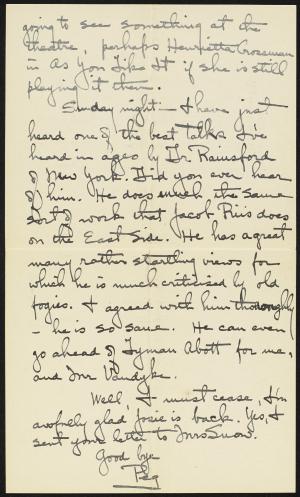 going to see something at the
theatre, perhaps Henrietta Crossman
in As You Like It if she is still
playing it then.
Sunday night - I have just
heard one of the best talks I've
heard in ages by Dr. Rainsford
of New York. Did you ever hear
of him. He does much the same
sort of work that Jacob Riis does
on the East Side. He has a great
many rather startling views for
which he is much criticised by old
fogies. I agreed with him thoroughly
- he is so sane. He can even
go ahead of Lyman Abott for me,
and Mr Vandyke.
Well I must cease, I'm
awfully glad Josie is back. Yes, I
sent your letter to Mrs Snow.
Good bye
Peg